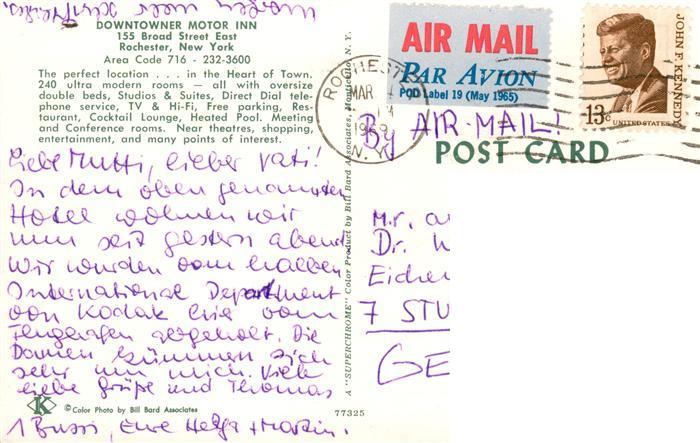 DOWNTOWNER MOTOR INN
155 Broad Street East
Rochester, New York
Area Code 716 - 232-3600
The perfect location . . . in the Heart of Town.
240 ultra modern rooms — all with oversize
double beds, Studios & Suites, Direct Dial tele-
phone service, TV & Hi-Fi, Free parking, Res-
taurant, Cocktail Lounge, Heated Pool. Meeting
and Conference rooms. Near theatres, shopping,
entertainment, and many points of interest.
Liebe Mutti, lieber Vati!
In dem oben genannten
Hotel wohnen wir
nun seit gestern abend
Wir wurden vom halben
International Department
von Kodak hier vom
Flughafen abgeholt. Die
Damen kümmern sich
sehr um mich. Viele
liebe Grüße und Thomas
1 Bussi, Eure Helga + Martin.
K
© Color Photo by Bill Bard Associates
77325
A "SUPERCHROME" Color Product by Bill Bard Associates, Monticello, N. Y.
AIR MAIL
PAR AVION
POD Label 19 (May 1965)
ROCHESTER
MAR
1969
N.Y.
JOHN F. KENNEDY
13c
UNITED STATES
By AIR-MAIL!
POST CARD
Mr. a
Dr.
Eicher
7 STU
GE